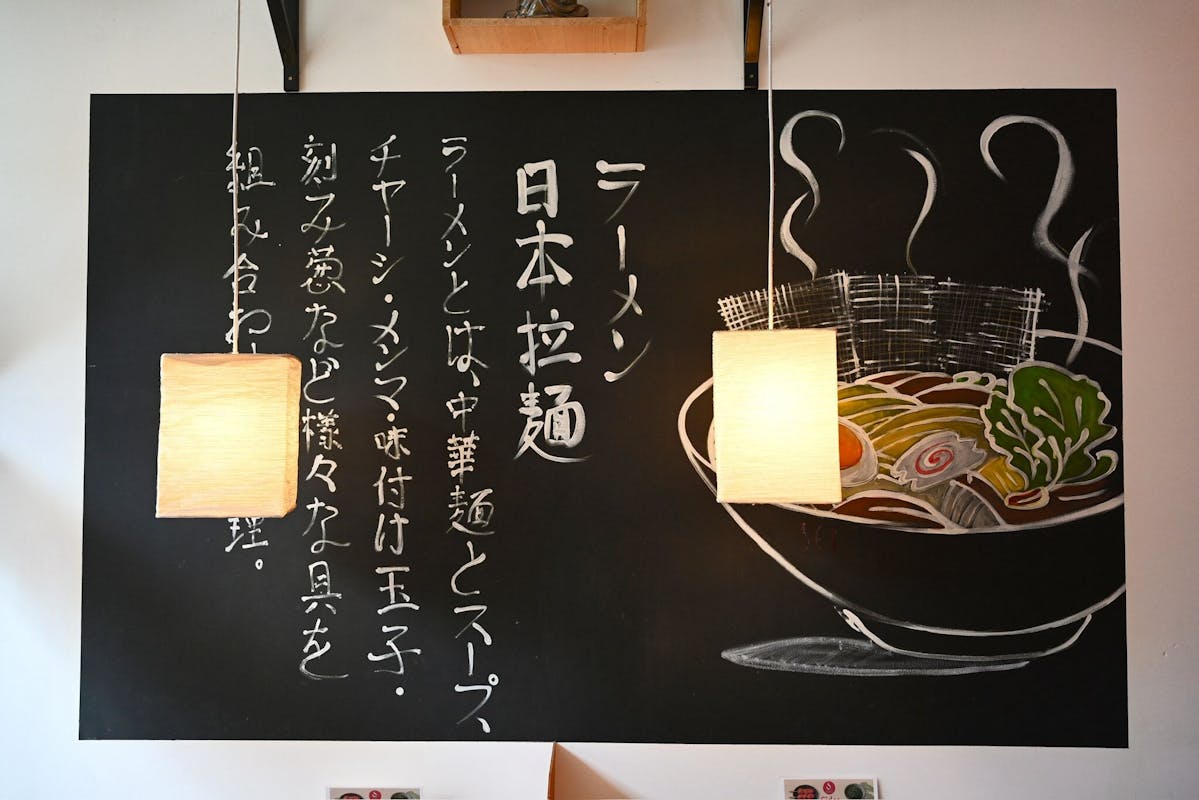 ラーメン
日本拉麺
ラーメンとは、中華麺とスープ、
チャーシ・メンマ・味付け玉子・
刻み葱など様々な具を
組み合わ理。